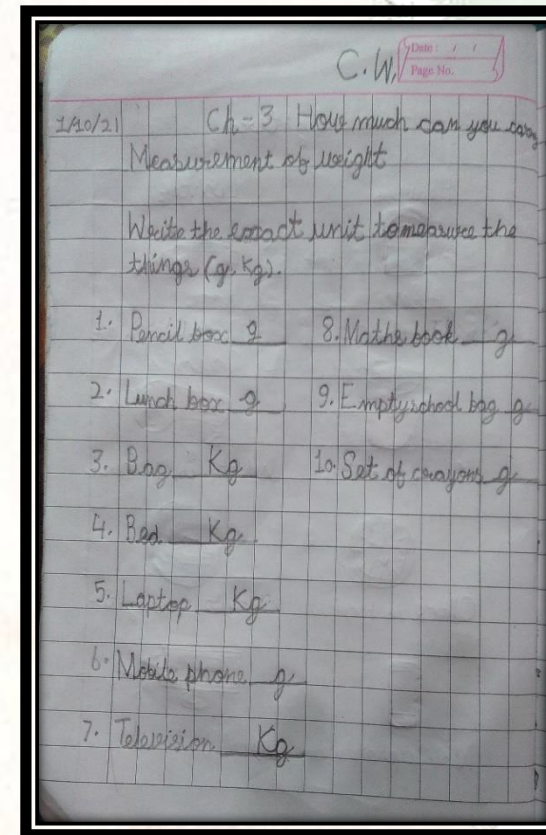 C.W.
Date: / /
Page No.
1/10/21
Ch-3 How much can you carry
Measurement of weight
Write the exact unit to measure the
things (g, Kg).
1. Pencil box g
2. Lunch box g
3. Bag Kg
4. Bed Kg
5. Laptop Kg
6. Mobile phone g
7. Television Kg
8. Maths book g
9. Empty school bag g
10. Set of crayons g